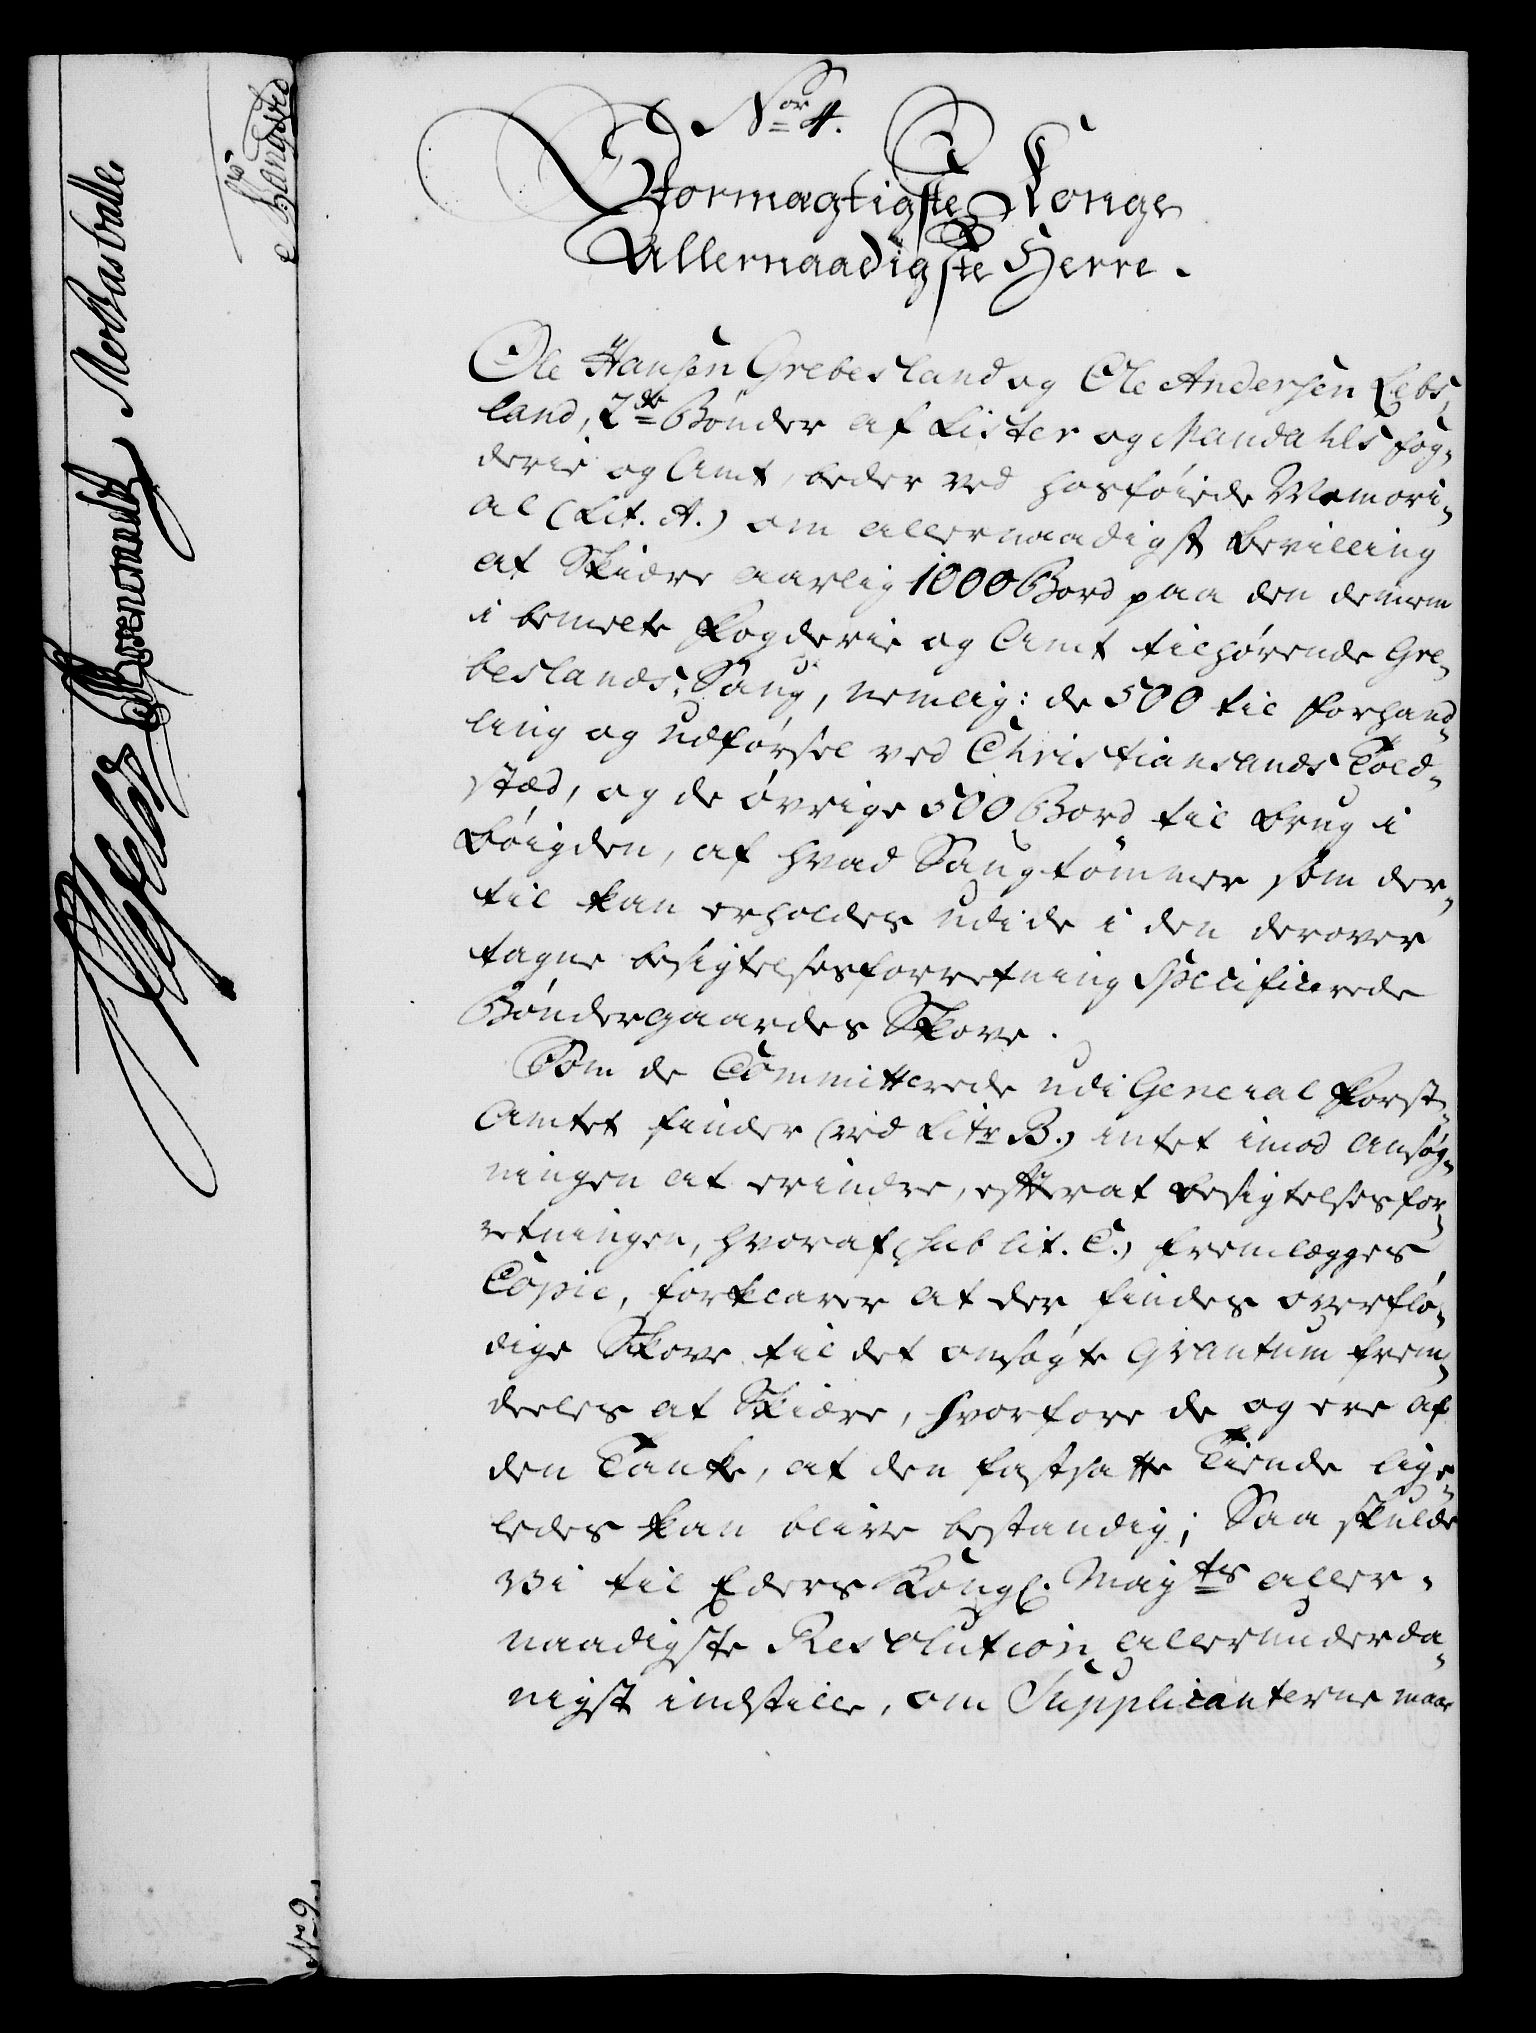 Nor 4.
Stormægtigste Konge
Allernaadigste Herre.
Ole Hansen Grebesland og Ole Andersen Lebs,
land, 2de Bønder af Lister og Mandahls Fog,
derie og Amt, beder ved hosføiede Memori,
al (Lit. A.) om allernaadigst Bevilling
at Skiære aarlig 1000 Bord paa den dennem
i bemelte Fogderie og Amt tilhørende Gre,
beslands, Saug, nemlig: de 500 til Forhand,
ling og Udførsel ved Christiansands Told,
stæd, og de øvrige 500 Bord til Brug i
Bøigden, af hvad Saugtømmer som der,
til kan erholdes udi de i den derover
tagne besigtelsesforretning Specificerede
Bøndergaardes Skove.
Som de Committerede udi General Forst,
Amtet finder (ved Litr B.) intet imod Ansøg,
ningen at erindre, efterat Besigtelsesfor,
retningen, hvoraf (sub lit. C.) fremlægges
Copie, forklarer at der findes overflø,
dige Skove til det ansøgte Qvantum frem,
deeles at Skiære, hvorfore de og ere af
den Tanke, at den fastsatte Tiende lige,
ledes kan blive bestandig; Saa skulde
Vi til Eders Kongl. Mayts aller,
naadigste Resolution allerunderda,
nigst indstille, om Supplicanterne maae
No 9.